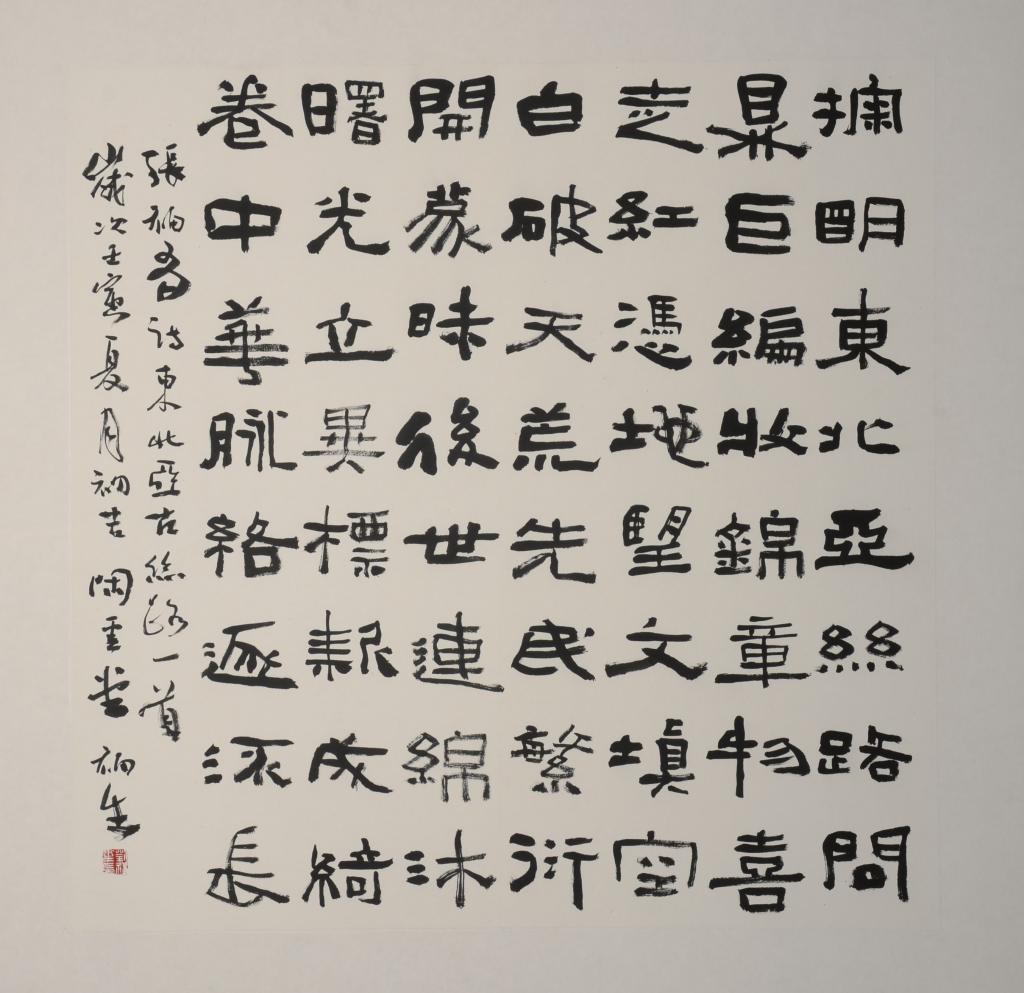 明東北亞絲路問
鼎巨編收錦章物喜
芝紅憑地望文填空
白破天荒先民繁衍
開蒙昧後世連綿沐
曙光立異標新成綺
卷中華脈絡逐流長
張福有詩東北亞古絲路一首
歲次壬寅夏月初吉 雲堂